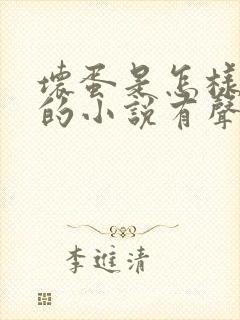 壞蛋是怎樣
的小說有聲
李進清